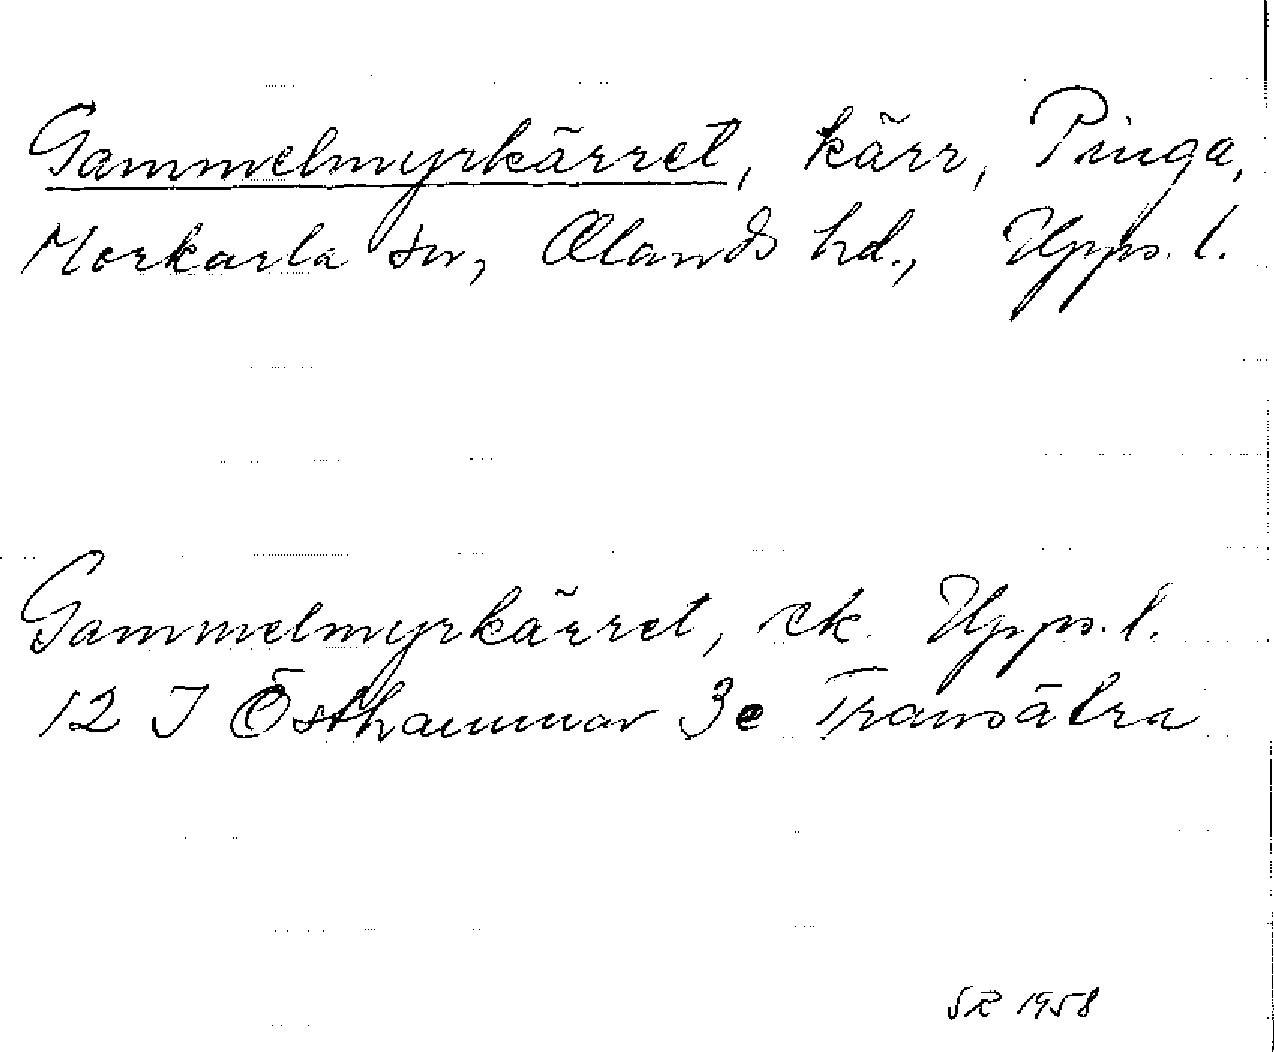 Gammelmyrkärret, kärr, Pinga,
Morkarla sn, Olands hd., Upps. l.
Gammelmyrkärret, ek. Upps. l.
12 I Östhammar 3e Transätra
SR 1958